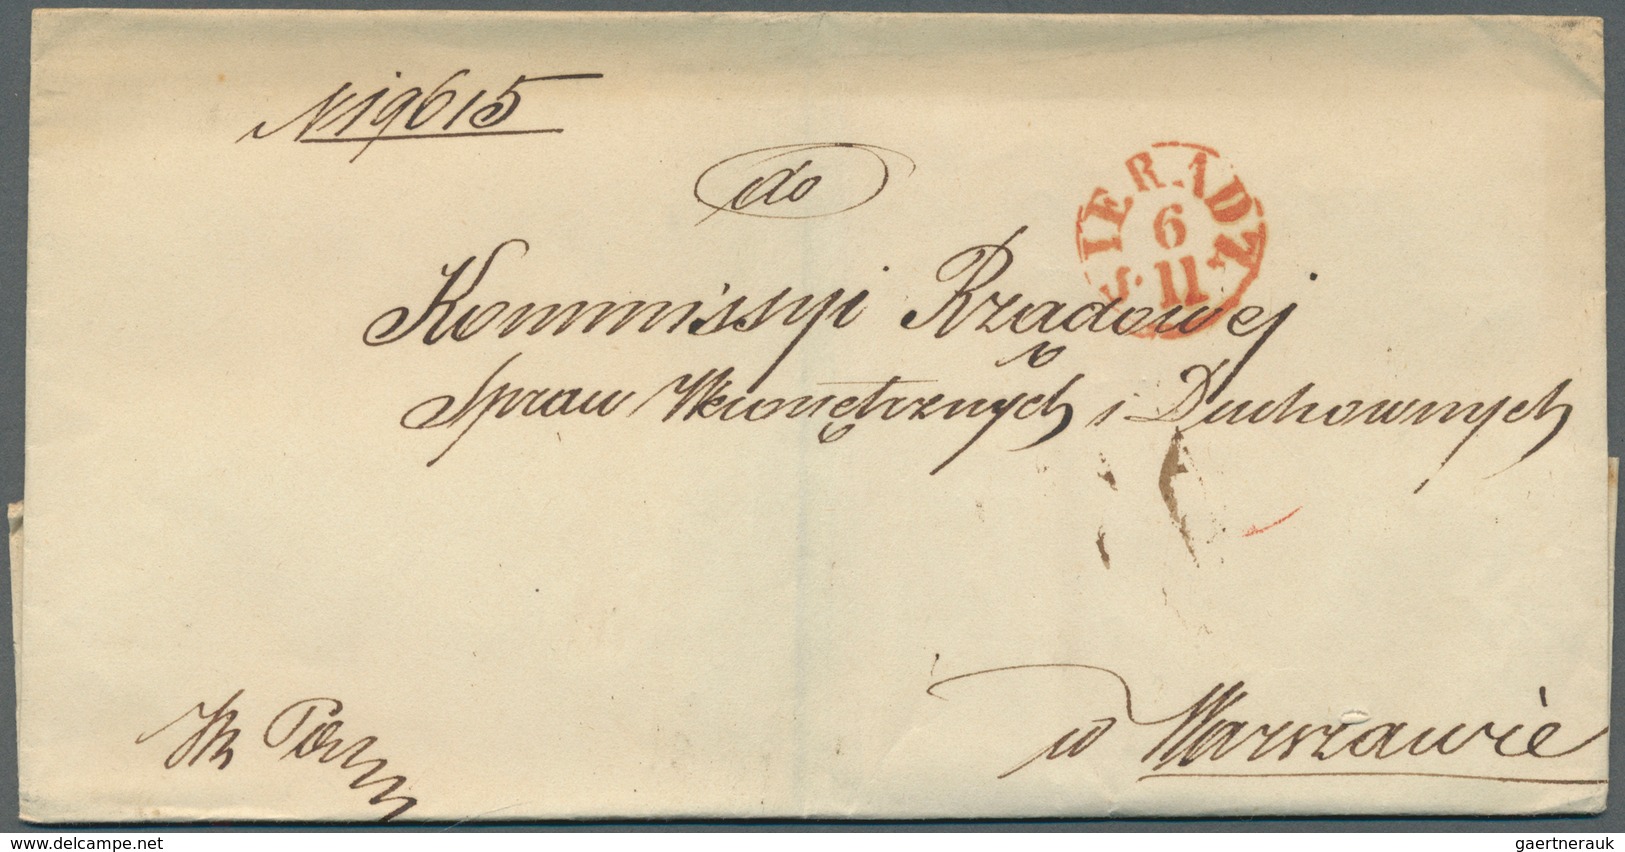 N 19615
do
SIERADZ
6
11
Kommissyi Rządowej
Spraw Wewnętrznych i Duchownych
w Warszawie
delcampe.net
gaertnerauk